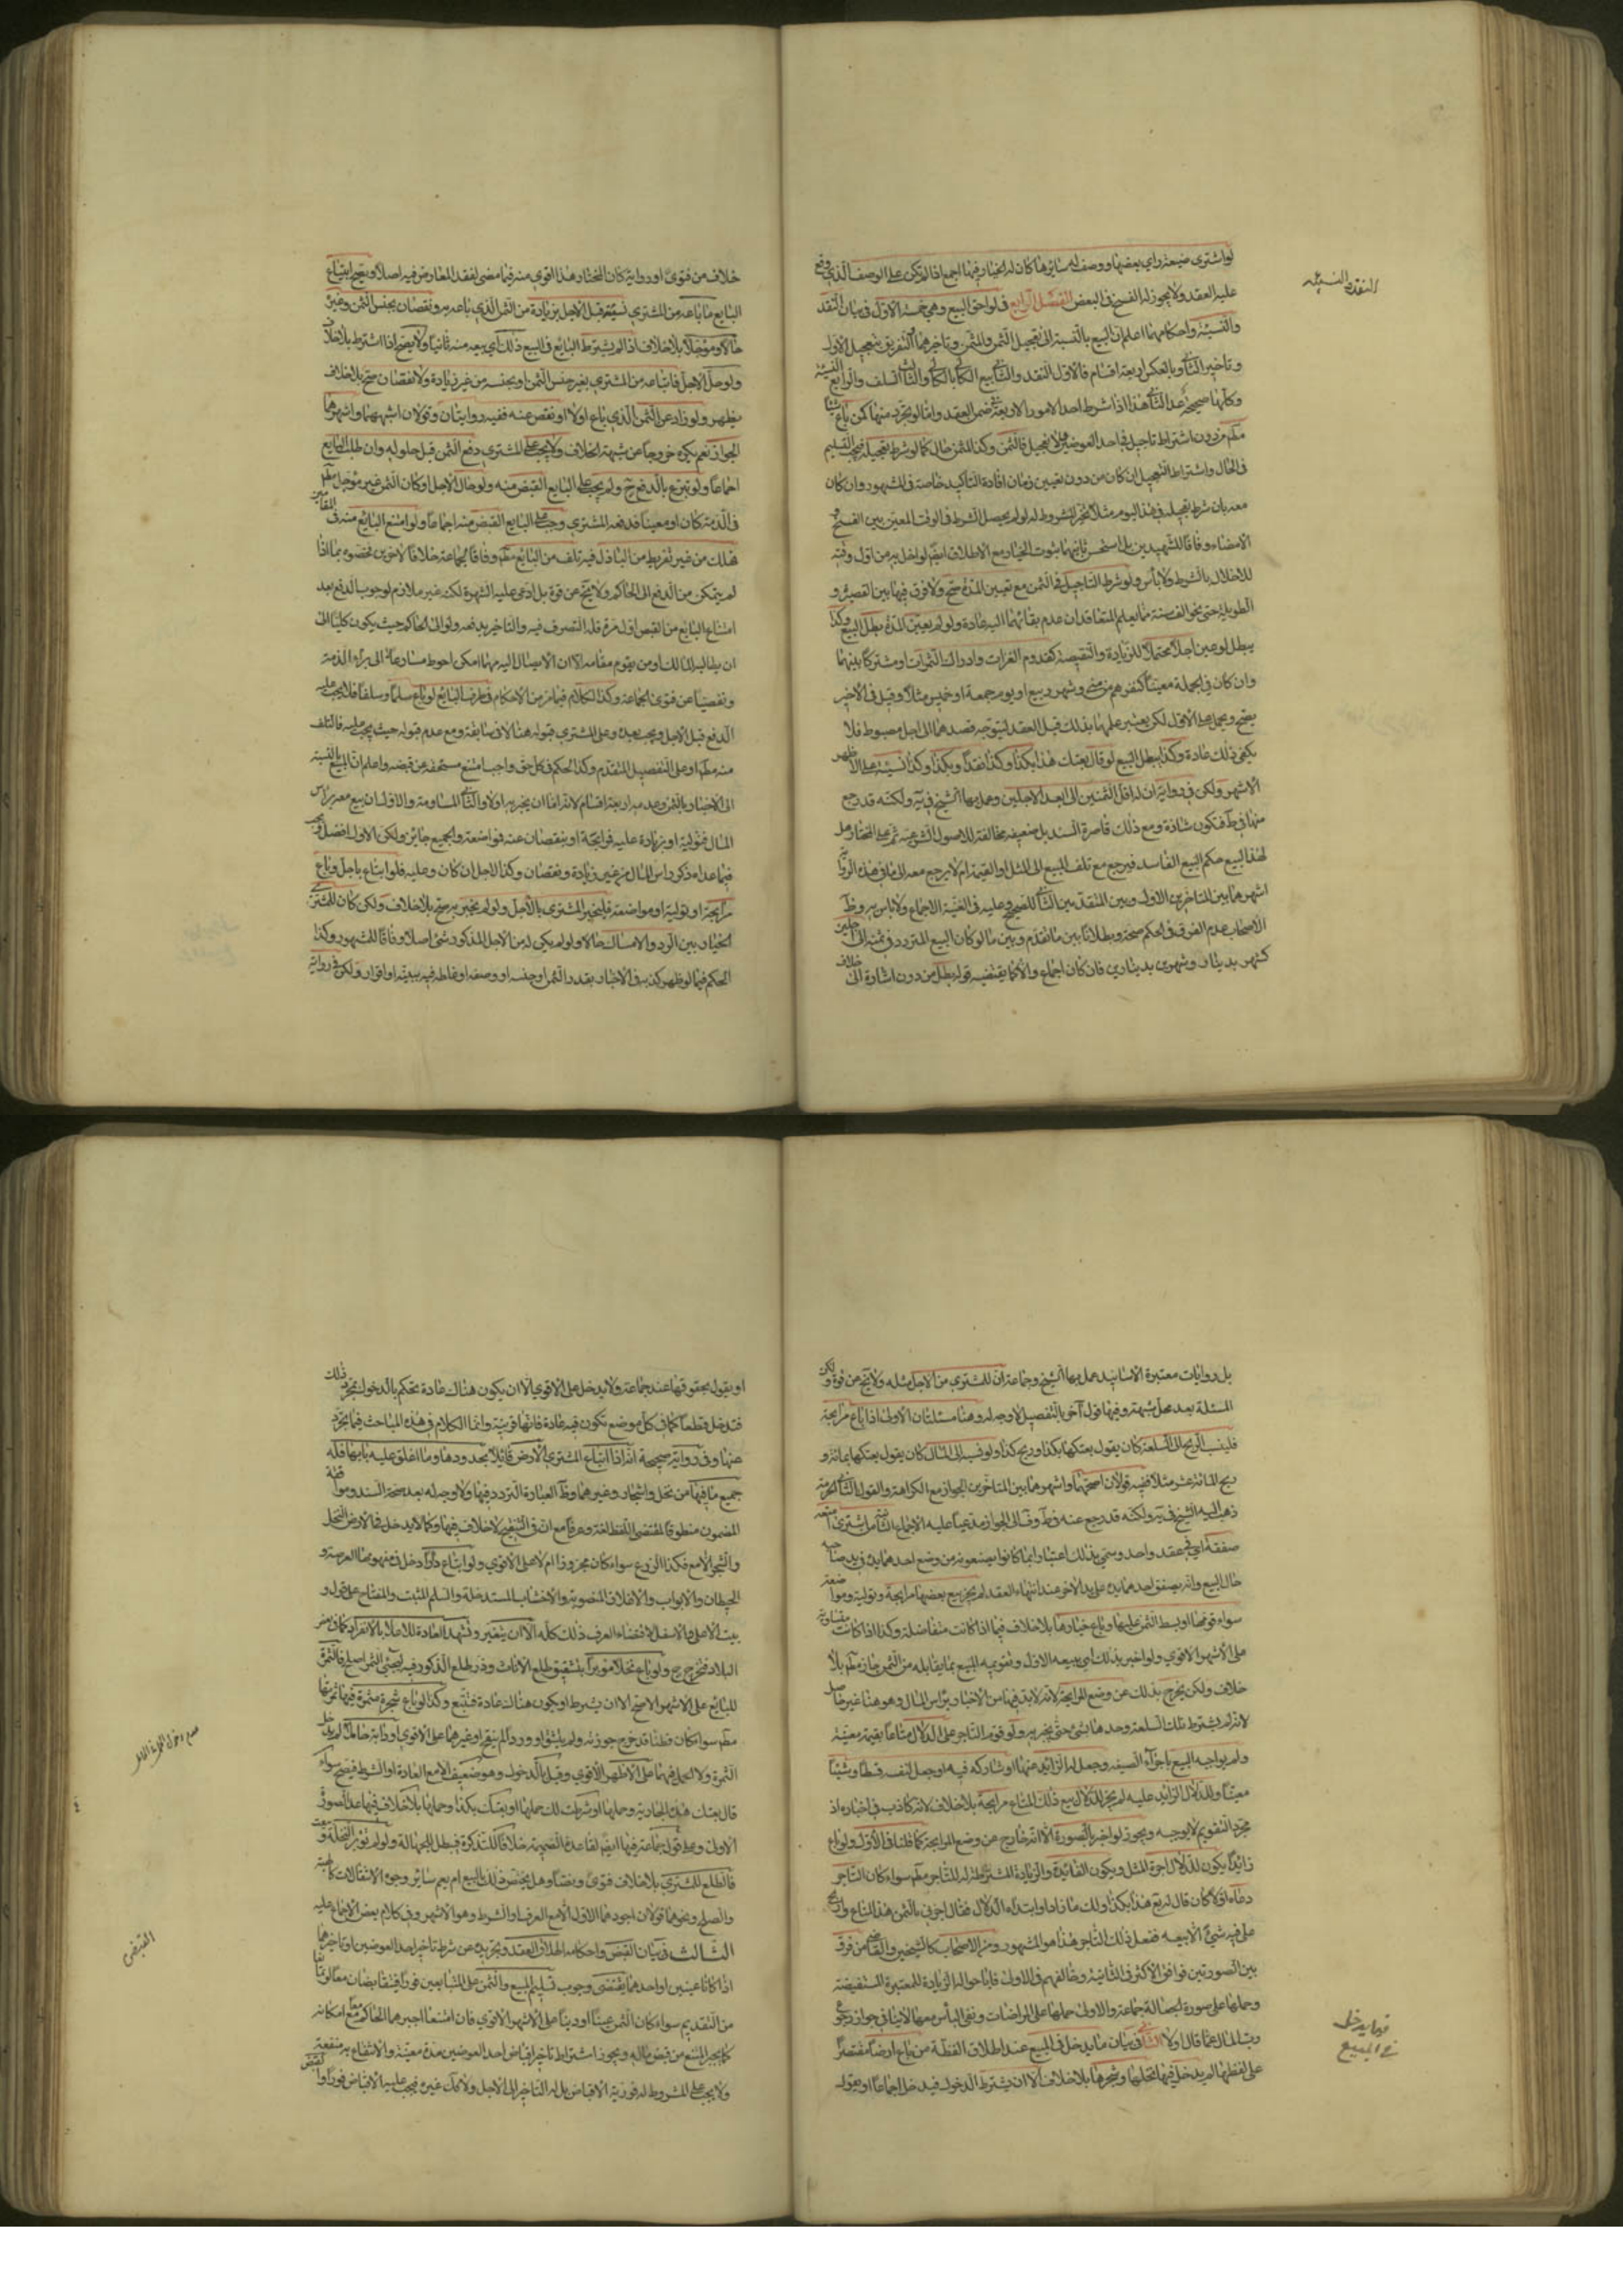 لو اشترى ضيعة راى بعضها ووصف له سايرها كان له الخيار فيها اجمع اذا لم تكن على الوصف الذي وقع
عليه العقد ولا يجوز له الفسخ في البعض الفصل الرابع في لواحق البيع وهي خمسة الاول في بيان النقد
والنسيئة واحكامهما اعلم ان البيع بالنسبة الى تعجيل الثمن والمثمن وتاخيرهما او التفريق بتعجيل الاول
وتاخير الثاني وبالعكس اربعة اقسام فالاول النقد والثاني بيع الكالي بالكالي والثالث السلف والرابع النسيئة
وكلها صحيحة عدا الثاني هذا اذا شرط احد الامور الاربعة في ضمن العقد وامّا لو تجرد منها كمن باع شيئا
مطم من دون اشتراط تاجيل في احد العوضين ولا تعجيل فالثمن وكذا المثمن حال كما لو شرط تعجيله فيجب التسليم
في الحال واشتراط التعجيل ان كان من دون تعيين زمان افادة التاكيد خاصة في المشهور وان كان
معه بان شرط تعجيله في هذا اليوم مثلا تخير المشروط له لو لم يحصل الشرط في الوقت المعين بين الفسخ و
الامضاء وفاقا للشهيدين بل استحسن ثانيهما ثبوت الخيار مع الاطلاق ايضا لو اخل به من اول وقته
للاخلال بالشرط ولا باس ولو شرط التاجيل في الثمن مع تعيين المدة صح ولا فرق فيها بين القصيرة و
الطويلة حتى نحو الف سنة مما يعلم المتعاقدان عدم بقائهما اليه عادة ولو لم يعين المدة بطل البيع وكذا
يبطل لو عين اجلا محتملا للزيادة والنقيصة كقدوم الغزات وادراك الثمرات او مشتركا بينهما
وان كان في الجملة معينا كنفرهم من منى وشهر ربيع او يوم جمعة او خميس مثلا وقيل في الاخير
يصح ويحمل على الاول لكن يعتبر علمهما بذلك قبل العقد ليتوجه قصدهما الى اجل مضبوط فلا
يكفي ذلك عادة وكذا يبطل البيع لو قال بعتك هذا بكذا وكذا نقدا وبكذا وكذا نسيئة على الاظهر
الاشهر ولكن في رواية ان له اقل الثمنين الى ابعد الاجلين وعمل بها الشيخ في يه ولكنه قد رجع
منها في ط فتكون شاذة ومع ذلك قاصرة السند بل ضعيفه مخالفة للاصول الشرعية ثم على المختار هل
لهذا البيع حكم البيع الفاسد فيرجع مع تلف المبيع الى المثل او القيمة ام لا يرجع معه الى ما في هذه الرواية
اشهرهما بين المتاخرين الاول وبين المتقدمين الثاني للصحيح وعليه في الغنية الاجماع ولا باس به وظ
الاصحاب عدم الفرق في الحكم صحة وبطلانا بين ما تقدم وبين ما لو كان البيع المتردد في ثمنه الى اجلين
كشهر بدينار وشهرين بدينارين فان كان اجماع والا كما يقتضيه قوله بطل من دون اشارة الى خلاف
النقد والنسيئه
خلاف من فتوى او رواية كان المختار هذا القوي منه فيما مضى لفقد المعارض فيه اصلا ويصح ابتياع
البايع ما باعه من المشتري نسيئة قبل الاجل بزيادة من الثمن الذي باعه به ونقصان بجنس الثمن وغيره
حالا ومؤجلا بلا خلاف اذا لم يشترط البايع في البيع ذلك اي بيعه منه ثانيا ولا يصح اذا اشترط بلا خلاف
ولو حل الاجل فابتاعه من المشتري بغير جنس الثمن او بجنسه من غير زيادة ولا نقصان صح بلا خلاف
يظهر ولو زاد عن الثمن الذي باع اولا او نقص عنه ففيه روايتان وقولان اشبههما واشهرهما
الجواز نعم يكره خروجا عن شبهة الخلاف ولا يجب على المشتري دفع الثمن قبل حلوله وان طلب البايع
اجماعا ولو تبرع بالدفع صح ولم يجب على البايع القبض منه ولو حال الاجل او كان الثمن غير مؤجل مطم
في الذمة كان او معينا فدفعه المشتري وجب على البايع القبض منه اجماعا ولو امتنع البايع منه في المقامين
فهلك من غير تفريط من الباذل فيه تلف من البايع مطم وفاقا لجماعة خلافا لاخرين فخصوه بما اذا
لم يتمكن من الدفع الى الحاكم ولا يخ عن قوة بل ادعى عليه الشهرة لكنه غير ملازم لوجوب الدفع بعد
امتناع البايع من القبض اول مرة فله التصرف فيه والتاخير بدفعه ولو الى الحاكم حيث يكون كليا الى
ان يطالبه المالك او من يقوم مقامه الا ان الايصال اليه مهما امكن احوط مسارعة الى براءة الذمة
وتفصيا عن فتوى الجماعة وكذا الكلام فيما مر من الاحكام في طرف البايع لو باع سلما وسلفا فلا يجب عليه
الدفع قبل الاجل ويجب بعده وعلى المشتري قبوله هنا لا في سابقه ومع عدم قبوله حيث يجب عليه فالتلف
منه مطم او على التفصيل المتقدم وكذا الحكم في كل حق واجب امتنع مستحقه من قبضه واعلم ان المبيع بالنسبة
الى الاخبار بالثمن وعدمه اربعة اقسام لانه اما ان يخبر به اولا والثاني المساومة والاول ان بيع معه براس
المال فتولية او بزيادة عليه فمرابحة او بنقصان عنه فمواضعة والجميع جائز ولكن الاول افضل ويجب
فيما عداه ذكر راس المال من غير زيادة ونقصان وكذا الاجل ان كان وعليه فلو ابتاع باجل وباع
مرابحة او تولية او مواضعة فليخبر المشتري بالاجل ولو لم يخبر به صح بلا خلاف ولكن كان للمشتري
الخيار بين الرد والامساك حالا ولو لم يكن له من الاجل المذكور شئ اصلا وفاقا للمشهور وكذا
الحكم فيما لو ظهر كذبه في الاخبار بقدر الثمن او جنسه او وصفه او غلطه فيه ببينة او اقرار ولكن في رواية
بل روايات معتبرة الاسانيد عمل بها الشيخ وجماعة ان للمشتري من الاجل مثله ولا يخ عن قوة ولكن
المسئلة بعد محل شبهة وفيها قول آخر بالتفصيل لا وجه له وهنا مسئلتان الاولى اذا باع مرابحة
فلينسب الربح الى السلعة كان يقول بعتكها بكذا وربح كذا ولو نسبه الى المال كان يقول بعتكها بمائة و
ربح المائة عشر مثلا ففيه قولان اصحهما واشهرهما بين المتاخرين الجواز مع الكراهة والقول الثاني الحرمة
ذهب اليه الشيخ في يه ولكنه قد رجع عنه في ط وف الى الجواز مدعيا عليه الاجماع الثانية من اشترى امتعة
صفقة اي في عقد واحد وسمي بذلك اعتبارا بما كانوا يصنعونه من وضع احدهما يده في يد صاحبه
حال البيع وانه يصفق احدهما يده على يد الاخر عند انتهاء العقد لم يجز بيع بعضها مرابحة وتولية ومواضعة
سواء قومها او بسط الثمن عليها وباع خيارها بلا خلاف فيما اذا كانت متفاضلة وكذا اذا كانت متساوية
على الاشهر الاقوي ولو اخبر بذلك اي ببيعه الاول وتقويمه المبيع بما يقابله من الثمن جاز مطم بلا
خلاف ولكن يخرج بذلك عن وضع المرابحة لانه لا بد فيها من الاخبار براس المال وهو هنا غير حاصل
لانه لم يشتر تلك السلعة وحدها بشئ حتى يخبر به ولو قوم التاجر على الدلال متاعا بقيمة معينة
ولم يواجبه البيع باجزاء الصيغه وجعل له الزايد عنها او شاركه فيه او جعل لنفسه قسطا وشيئا
معينا وللدلال الزايد عليه لم يجز للدلال بيع ذلك المتاع مرابحة بلا خلاف لانه كاذب في اخباره اذ
مجرد التقويم لا يوجبه ويجوز لو اخبر بالصورة الا انه خارج عن وضع المرابحة كما قلنا في الاول ولو باع
زائدا يكون للدلال اجرة المثل ويكون الفائدة والزيادة المشترطة له للتاجر مطم سواء كان التاجر
دعاه اولا كان قال له بع هذا بكذا ولك ما زاد او ابتداه الدلال فقال اخبرني بالثمن هذا المتاع واربح
على فيه شئ الابيعه ففعل ذلك التاجر هذا هو المشهور ومن الاصحاب كالشيخين والقاضي من فرق
بين الصورتين فوافق الاكثر في الثانية وخالفهم في الاولى فاباحوا له الزيادة للمعتبرة المستفيضة
وحملها على صورة الجعالة جماعة والاولى حملها على المراضات ونفي الباس معها لا ينافي جواز رجوع
رب المال عما قال اولا الثاني في بيان ما يدخل في المبيع عند اطلاق اللفظة من باع ارضا مقتصرا
على لفظها لم يدخل فيها نخلها وشجرها بلا خلاف الا ان يشترط الدخول فيدخل اجماعا او يقول
فيما يدخل
في المبيع
او يقول بحقوقها عند جماعة ولا يدخل على الاقوي الا ان يكون هناك عادة تحكم بالدخول بمجرد ذلك
فتدخل قطعا كما في كل موضع تكون فيه عادة فانها قرينة وانما الكلام في هذه المباحث فيما يجرد
عنها وفي رواية صحيحة انه اذا ابتاع المشتري الارض قائلا بحدودها وما اغلق عليه بابها فله
جميع ما فيها من نخل واشجار وغيرهما وظ العبارة التردد فيها ولا وجه له بعد صحة السند وموافقة
المضمون منطوقا لمقتضى اللفظ لغة وعرفا مع انه في التنقيح لا خلاف فيها وكما لا يدخل في الارض النخل
والشجر الا مع فكذا الزرع سواء كان مجزوزا ام لا على الاقوي ولو ابتاع دارا دخل في مفهومها العرصة و
الحيطان والابواب والاغلاق المنصوبة والاخشاب المستدخلة والسلم المثبت والمفتاح على قول و
بيت الاعلى والاسفل لاقتضاء العرف ذلك كله الا ان يتغير وتشهد العادة للاعلا بالانفراد كما في بعض
البلاد فتخرج ح ولو باع نخلا مؤبرا بتشقيق طلع الاناث وذر طلع الذكور فيه ليجيئ الثمر اصلح فالثمرة
للبايع على الاشهر الاصح الا ان يشترط او يكون هناك عادة فتتبع وكذا لو باع شجرة مثمرة فيها ثمرتها
مطم سواء كان قطنا قد خرج جوزته ولم يتشق او وردا لم يتفتح او غيرهما على الاقوي او دابة حاملا لم يدخل
الثمرة ولا الحمل فيهما على الاظهر الاقوي وقيل بالدخول وهو ضعيف الا مع العادة او الشرط فيصح سواء
قال بعتك هذه الجارية وحملها او شرطت لك حملها او بعتك بكذا وحملها بلا خلاف فيها عدا الصورة
الاولى وعلى قول جماعة فيها ايضا لقاعدة الضميمة خلافا للتذكرة فيبطل للجهالة ولو لم تؤبر النخلة وبيعت
فالطلع للمشتري بلا خلاف فتوى ونصا وهل يختص ذلك بالبيع ام يعم سائر وجوه الانتقالات كالهبة
والصلح ونحوهما قولان اجودهما الاول الا مع العرف او الشرط وهو الاشهر وفي كلام بعض الاجماع عليه
الثالث في بيان القبض واحكامه اطلاق العقد وتجريده عن شرط تاخير احد العوضين او تاخيرهما
اذا كانا عينين او احدهما يقتضي وجوب تسليم المبيع والثمن على المتبايعين فورا فيتقابضان معا لو تمانعا
من التقديم سواء كان الثمن عينا او دينا على الاشهر الاقوي فان امتنعا اجبرهما الحاكم معا مع امكانه
كما يجبر الممتنع من قبض ماله ويجوز اشتراط تاخير اقباض احد العوضين مدة معينة والانتفاع به منفعة
ولا يجب على المشروط له فورية الاقباض بل له التاخير الى الاجل ولا كك غيره فيجب عليه الاقباض فورا
القبض